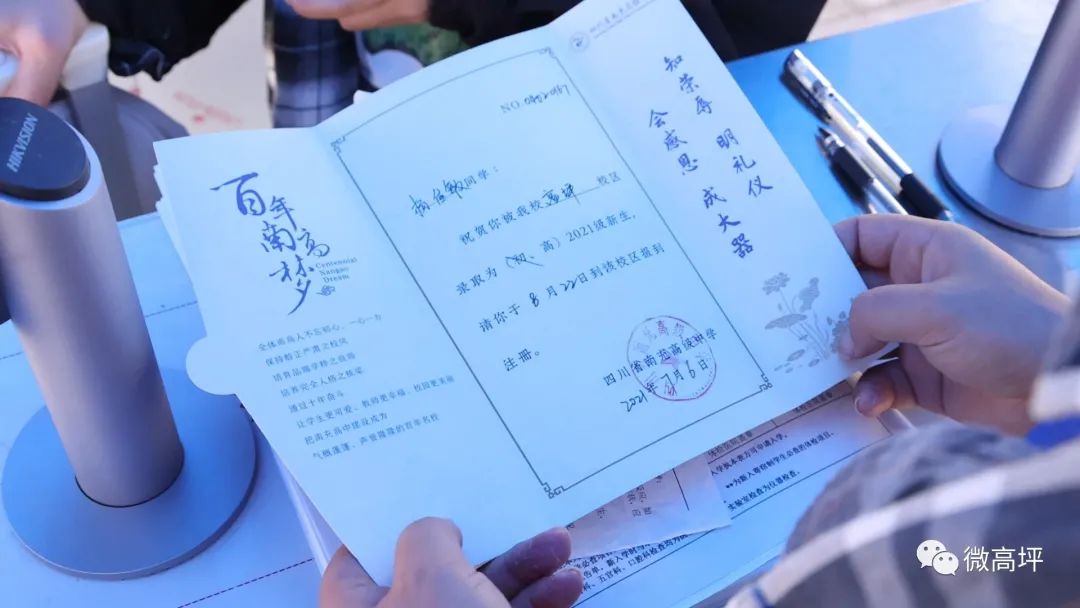 HIKVISION
百年
南高
梦
Centennial
Nangao
Dream
全体南高人不忘初心、一心一力
保持醇正严肃之校风
培养完全人格之栋梁
通过十年奋斗
让学生更可爱、教师更幸福、校园更美丽
把南充高中建设成为
气概蓬蓬、声誉隆隆的百年名校
NO.
同学：
祝贺你被我校高坪校区
录取为（初、高）2021级新生，
请你于8月22日到该校区报到
注册。
四川省南充高级中学
2021年7月6日
知荣辱 明礼仪
会感恩 成大器
体检医院盖章
**为新入尊宿制学生必查的体检项目。
实验室检查为仪器检查。
微高坪